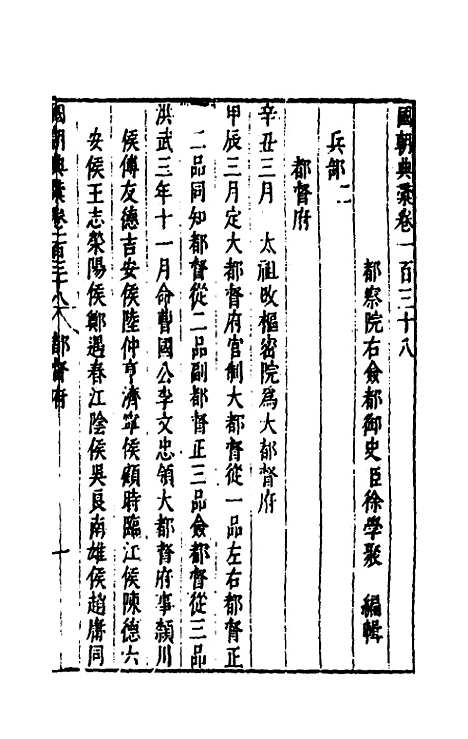 國朝典彙卷一百三十八
都察院右僉都御史臣徐學聚　編輯
兵部二
都督府
辛丑三月　太祖改樞密院爲大都督府
甲辰三月定大都督府官制大都督從一品左右都督正
二品同知都督從二品副都督正三品僉都督從三品
洪武三年十一月命曹國公李文忠領大都督府事潁川
侯傅友德吉安侯陸仲亨濟寧侯顧時臨江侯陳德六
安侯王志滎陽侯鄭遇春江陰侯吳良南雄侯趙庸同
國朝典彙卷一百三十八　都督府　一